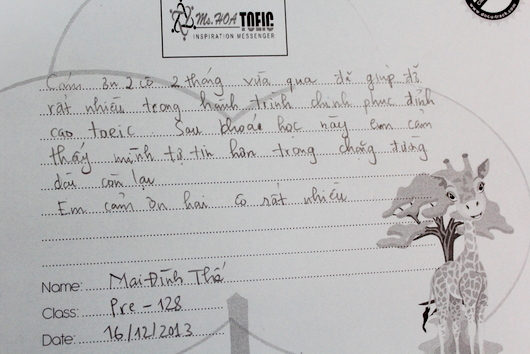 Ms. HOA TOEIC
INSPIRATION MESSENGER
Cám ơn 2 cô 2 tháng vừa qua đã giúp đỡ
rất nhiều trong hành trình chinh phục đỉnh
cao toeic. Sau khoá học này em cảm
thấy mình tự tin hơn trong chặng đường
dài còn lại
Em cảm ơn hai cô rất nhiều
Name: Mai Đình Thế
Class: Pre - 128
Date: 16/12/2013